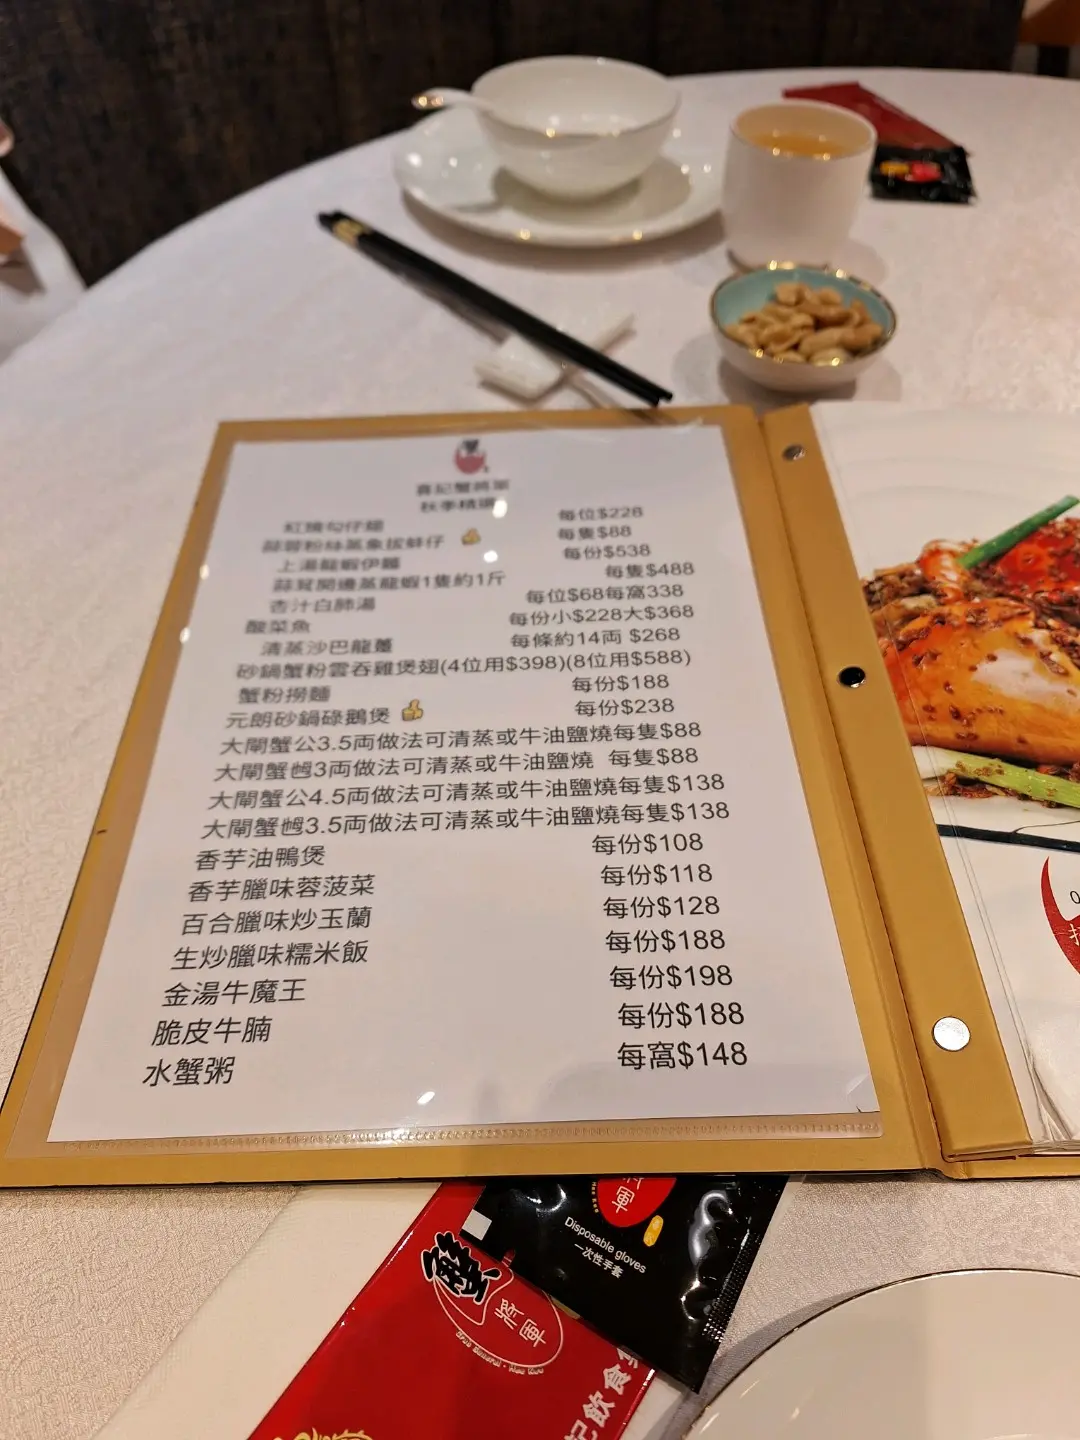 喜記蟹將軍
秋季精選
紅燒勾仔翅 每位$228
蒜蓉粉絲蒸象拔蚌仔 每隻$88
上湯龍蝦伊麵 每份$538
蒜茸開邊蒸龍蝦1隻約1斤 每隻$488
杏汁白肺湯 每位$68每窩338
酸菜魚 每份小$228大$368
清蒸沙巴龍躉 每條約14両 $268
砂鍋蟹粉雲吞雞煲翅(4位用$398)(8位用$588)
蟹粉撈麵 每份$188
元朗砂鍋碌鵝煲 每份$238
大閘蟹公3.5両做法可清蒸或牛油鹽燒每隻$88
大閘蟹乸3両做法可清蒸或牛油鹽燒 每隻$88
大閘蟹公4.5両做法可清蒸或牛油鹽燒每隻$138
大閘蟹乸3.5両做法可清蒸或牛油鹽燒每隻$138
香芋油鴨煲 每份$108
香芋臘味蓉菠菜 每份$118
百合臘味炒玉蘭 每份$128
生炒臘味糯米飯 每份$188
金湯牛魔王 每份$198
脆皮牛腩 每份$188
水蟹粥 每窩$148
將軍
Disposable gloves
一次性手套
蟹
將軍
記飲食集